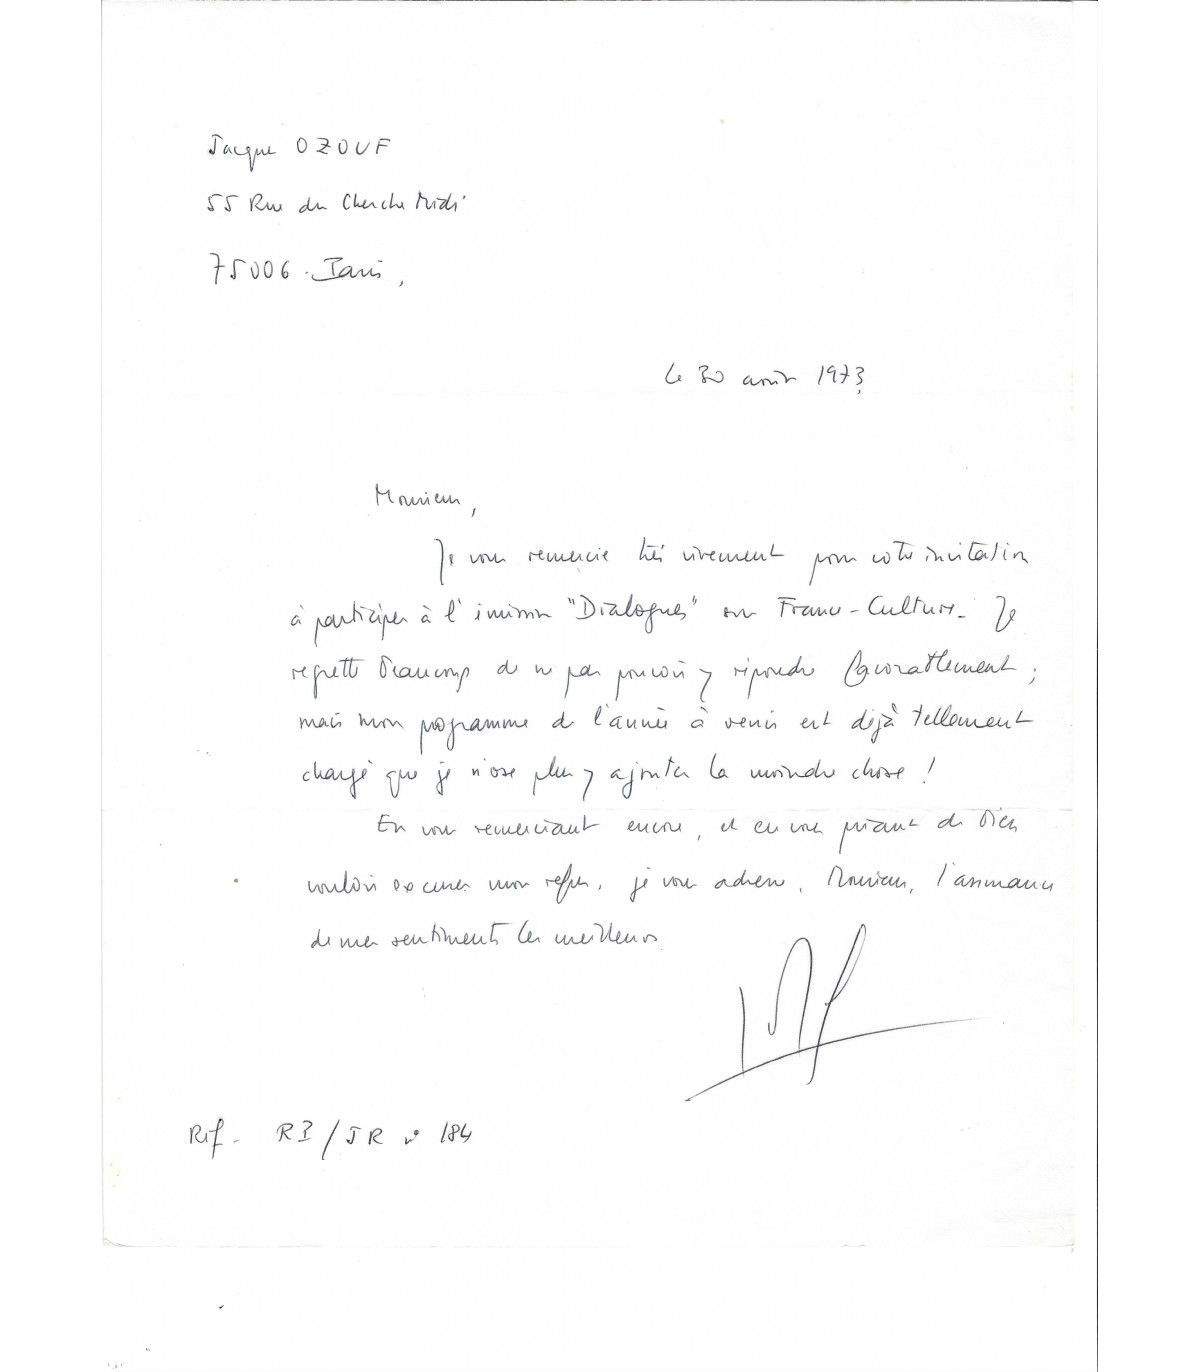 Jacques OZOUF
55 Rue du Cherche Midi
75006 - Paris,
Le 30 août 1973
Monsieur,
Je vous remercie très vivement pour votre invitation
à participer à l'émission "Dialogues" sur France-Culture. Je
regrette beaucoup de ne pas pouvoir y répondre favorablement ;
mais mon programme de l'année à venir est déjà tellement
chargé que je n'ose plus y ajouter la moindre chose !
En vous remerciant encore, et en vous priant de bien
vouloir excuser mon refus, je vous adresse, Monsieur, l'assurance
de mes sentiments les meilleurs.
Réf - /JR n° 184